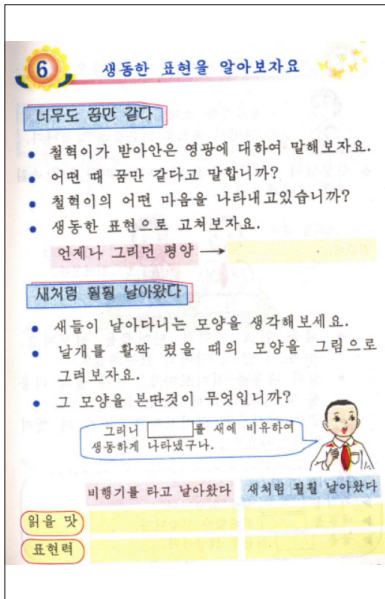 6 생동한 표현을 알아보자요
너무도 꿈만 같다
• 철혁이가 받아안은 영광에 대하여 말해보자요.
• 어떤 때 꿈만 같다고 말합니까?
• 철혁이의 어떤 마음을 나타내고있습니까?
• 생동한 표현으로 고쳐보자요.
언제나 그리던 평양 →
새처럼 훨훨 날아왔다
• 새들이 날아다니는 모양을 생각해보세요.
• 날개를 활짝 폈을 때의 모양을 그림으로
그려보자요.
• 그 모양을 본딴것이 무엇입니까?
그러니 를 새에 비유하여
생동하게 나타냈구나.
비행기를 타고 날아왔다 새처럼 훨훨 날아왔다
읽을 맛
표현력